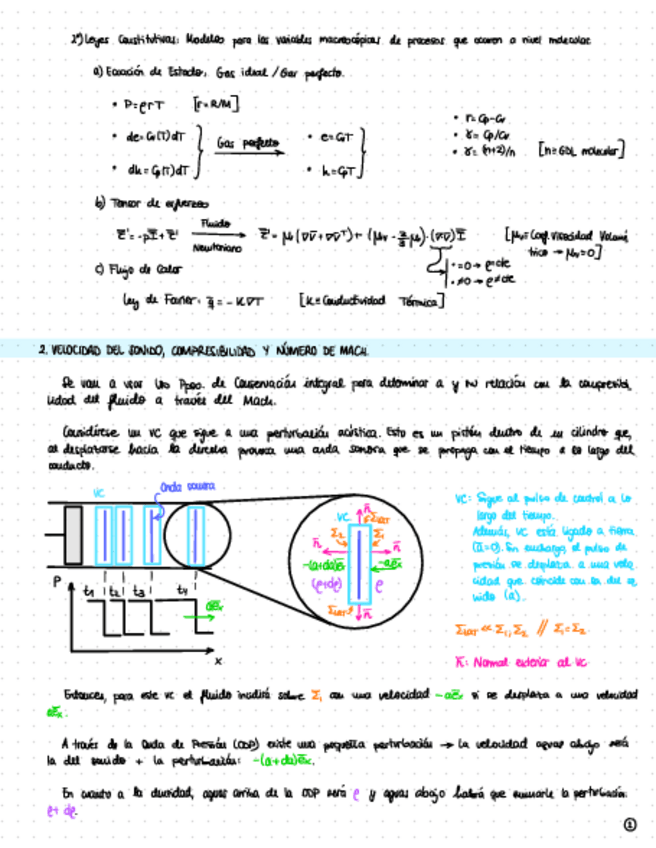 2º) Leyes Constitutivas: Modelos para las variables macroscópicas de procesos que ocurren a nivel molecular
a) Ecuación de Estado: Gas ideal / Gas perfecto.
• P=ρrT [r=R/M]
• de=Cv(T)dT
• dh=Cp(T)dT
Gas perfecto
• e=CvT
• h=CpT
• r=Cp-Cv
• γ=Cp/Cv
• γ=(n+2)/n [n=GDL molecular]
b) Tensor de esfuerzo
Fluido
Newtoniano
[μv=Coef. Viscosidad Volumé
trica → μv=0]
• =0 → ρ=cte
• ≠0 → ρ≠cte
c) Flujo de Calor
Ley de Fourier: q̄ = -K∇T [K=Conductividad Térmica]
2. VELOCIDAD DEL SONIDO, COMPRESIBILIDAD Y NÚMERO DE MACH
Se van a usar los Ppos. de Conservación integral para determinar a y su relación con la compresibi
lidad del fluido a través del Mach.
Considérese un VC que sigue a una perturbación acústica. Esto es un pistón dentro de un cilindro que,
al desplazarse hacia la derecha provoca una onda sonora que se propaga con el tiempo a lo largo del
conducto.
VC
Onda sonora
P
t1 t2 t3 t4
aēx
x
VC
n̄
Σlat
Σ2
Σ1
n̄
n̄
-(a+da)ēx
-aēx
(ρ+dρ)
ρ
Σlat
n̄
VC: Sigue al pulso de control a lo
largo del tiempo.
Además, VC está ligado a tierra
(ū=0). Sin embargo, el pulso de
presión se desplaza a una velo
cidad que coincide con la del so
nido (a).
Σlat << Σ1, Σ2 // Σ1=Σ2
n̄: Normal exterior al VC
Entonces, para este VC el fluido incidirá sobre Σ1 con una velocidad -aēx si se desplaza a una velocidad
aēx.
A través de la Onda de Presión (ODP) existe una pequeña perturbación → la velocidad aguas abajo será
la del sonido + la perturbación: -(a+da)ēx.
En cuanto a la densidad, aguas arriba de la ODP será ρ y aguas abajo habrá que sumarle la perturbación:
ρ+dρ.
1